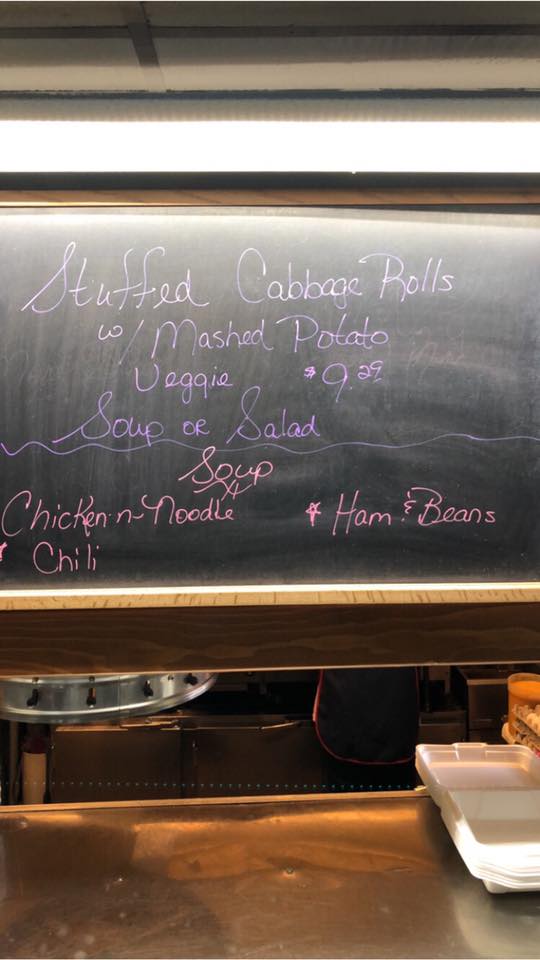 Stuffed Cabbage Rolls
w/ Mashed Potato
Veggie $9.29
Soup or Salad
Soup
Chicken-n-Noodle * Ham & Beans
* Chili